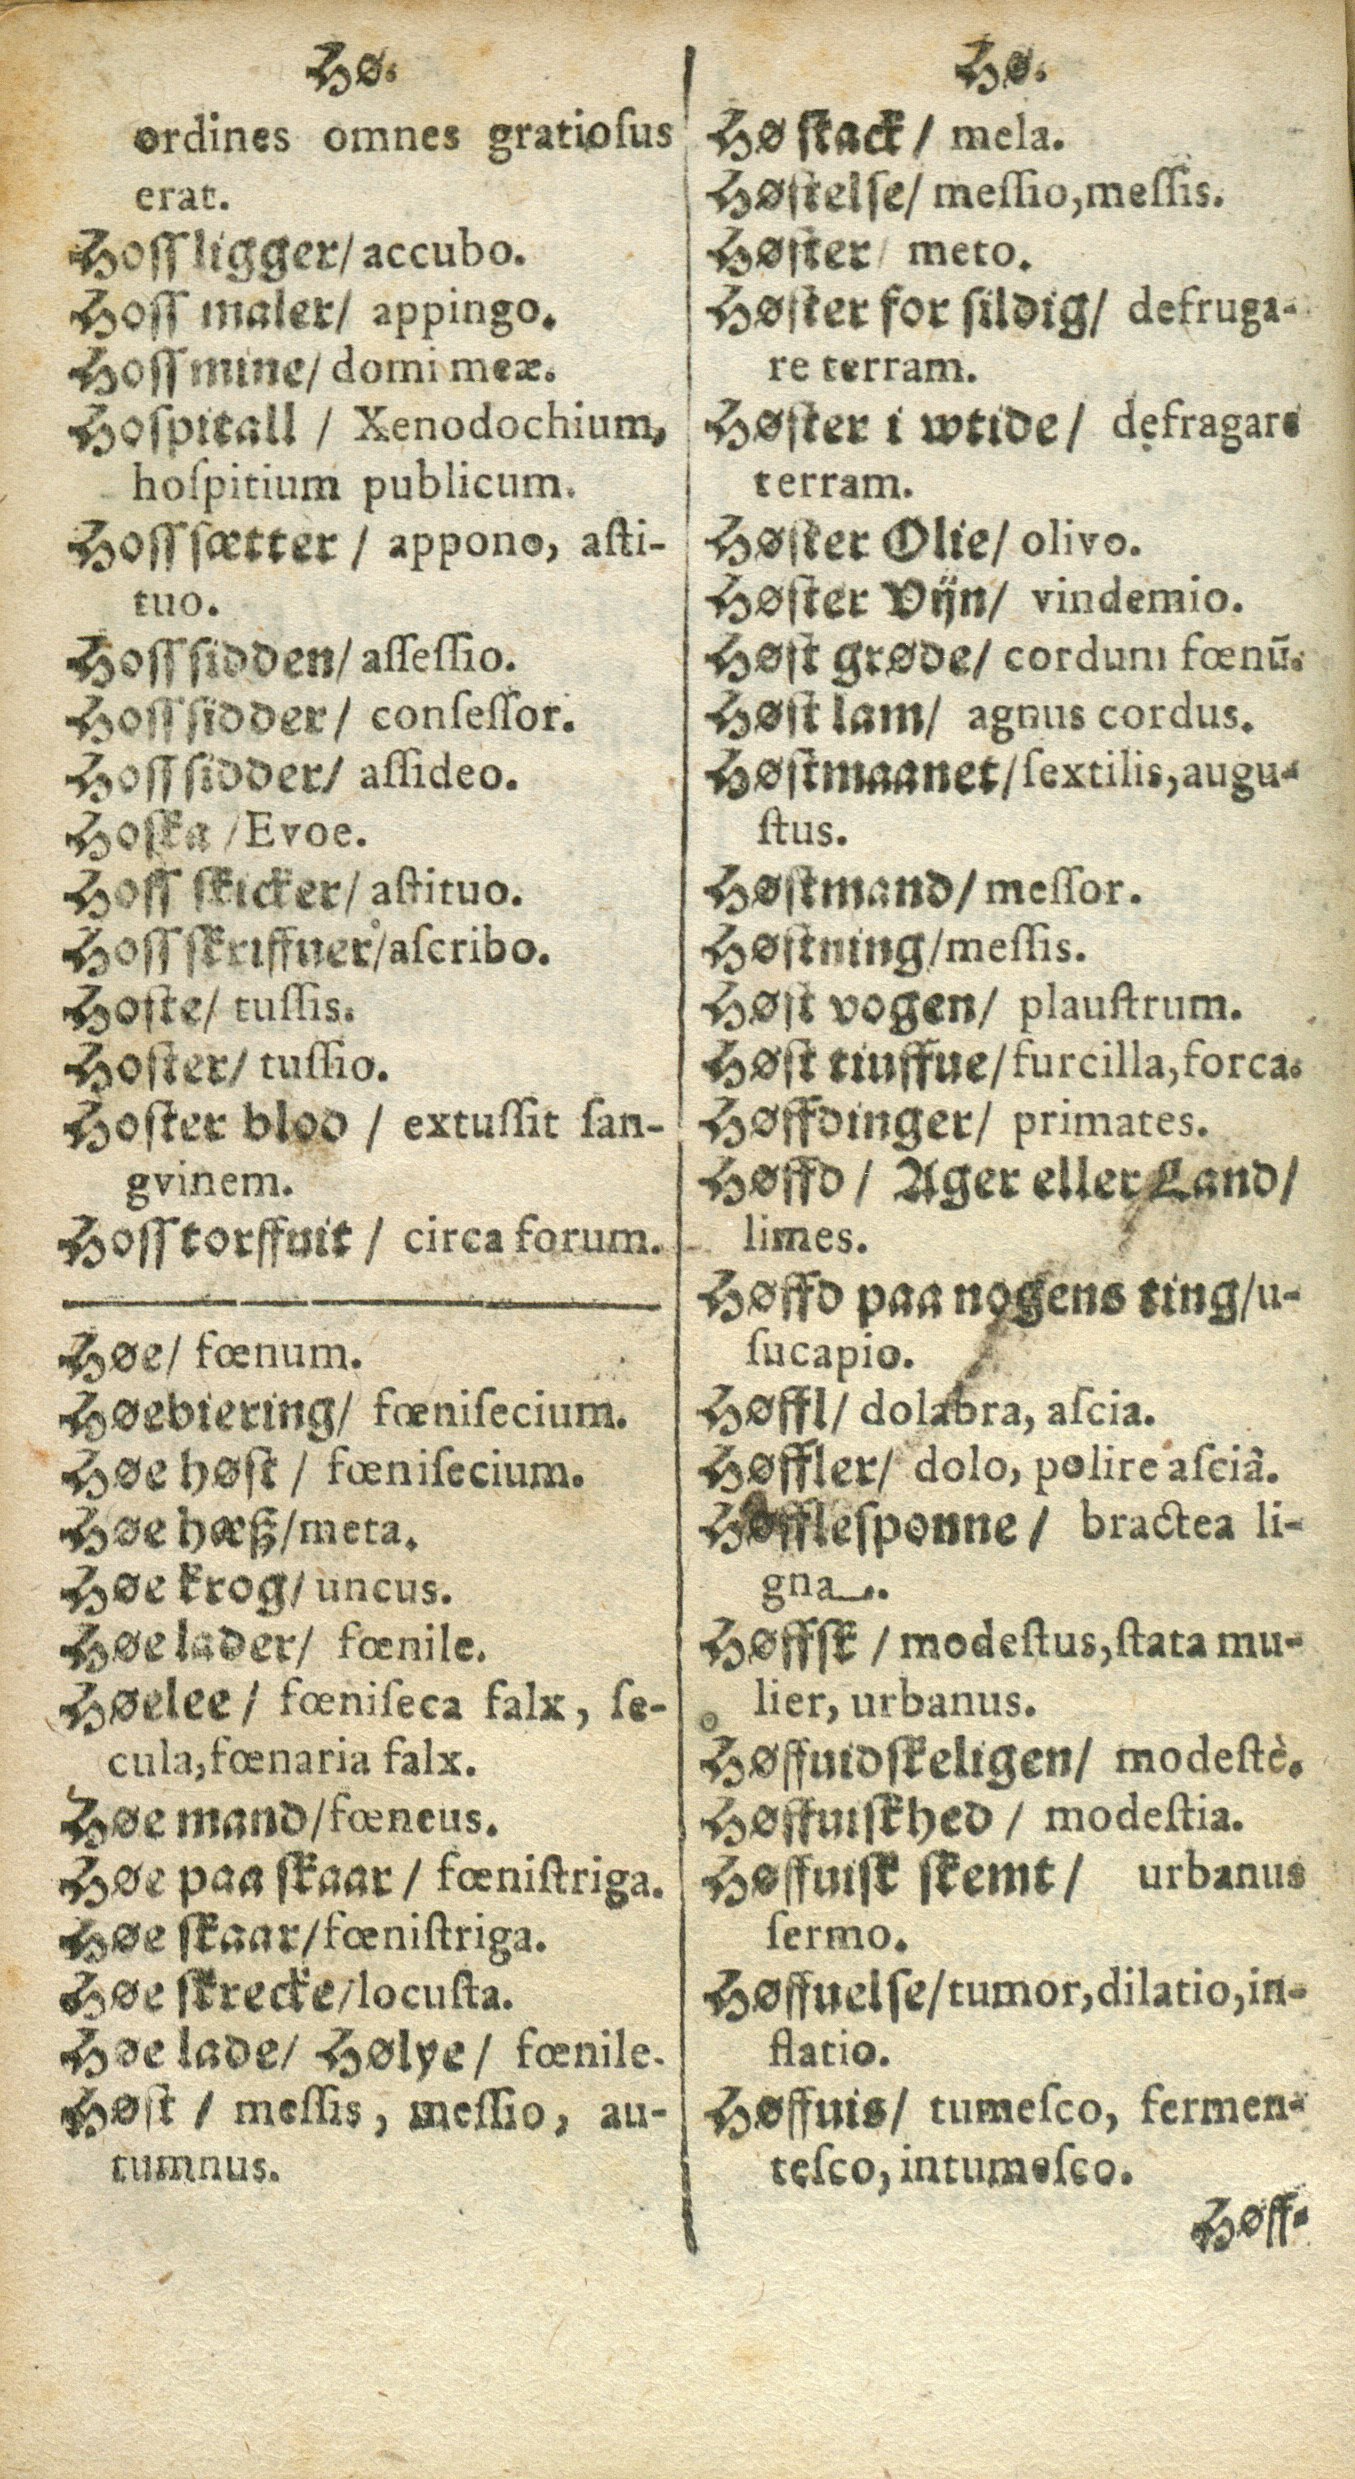 Hø.
ordines omnes gratioſus
erat.
Hoſſ ligger/ accubo.
Hoſſ maler/ appingo.
Hoſſ mine/ domi meæ.
Hoſpitall / Xenodochium,
hoſpitium publicum.
Hoſſ ſætter / appono, aſti-
tuo.
Hoſſ ſidden/ aſſeſſio.
Hoſſ ſidder/ conſeſſor.
Hoſſ ſidder/ aſſideo.
Hoſka /Evoe.
Hoſſ ſkicker/ aſtituo.
Hoſſ ſkriffuer/aſcribo.
Hoſte/ tuſſis.
Hoſter/ tuſſio.
Hoſter blod / extuſſit ſan-
gvinem.
Hoſſ torffuit / circa forum.
Høe/ fœnum.
Høebiering/ fœniſecium.
Høe høſt / fœniſecium.
Høe hæß/meta.
Høe krog/ uncus.
Høe lader/ fœnile.
Høelee / fœniſeca falx, ſe-
cula,fœnaria falx.
Høe mand/fœneus.
Høe paa ſkaar / fœniſtriga.
Høe ſkaar/fœniſtriga.
Høe ſkrecke/locuſta.
Høe lade/ Hølye/ fœnile.
Høſt / meſſis, meſſio, au-
tumnus.
Hø.
Hø ſtack / mela.
Høſtelſe/ meſſio,meſſis.
Høſter/ meto.
Høſter for ſildig/ defruga-
re terram.
Høſter i wtide/ defragare
terram.
Høſter Olie/ olivo.
Høſter Vijn/ vindemio.
Høſt grøde/ cordum fœnū.
Høſt lam/ agnus cordus.
Høſtmaanet/ſextilis,augu-
ſtus.
Høſtmand/ meſſor.
Høſtning/meſſis.
Høſt vogen/ plauſtrum.
Høſt tiuffue/furcilla,forca.
Høffdinger/ primates.
Høffd / Ager eller Land/
limes.
Høffd paa nogens ting/u-
ſucapio.
Høffl/ dolabra, aſcia.
Høffler/ dolo, polire aſciâ.
Høffleſponne / bractea li-
gna.
Høffſk / modeſtus,ſtata mu-
lier, urbanus.
Høffuidſkeligen/ modeſtè.
Høffuiſkhed / modeſtia.
Høffuiſk ſkemt / urbanus
ſermo.
Høffuelſe/tumor,dilatio,in-
flatio.
Høffuis/ tumeſco, fermen-
teſco, intumeſco.
Høff-